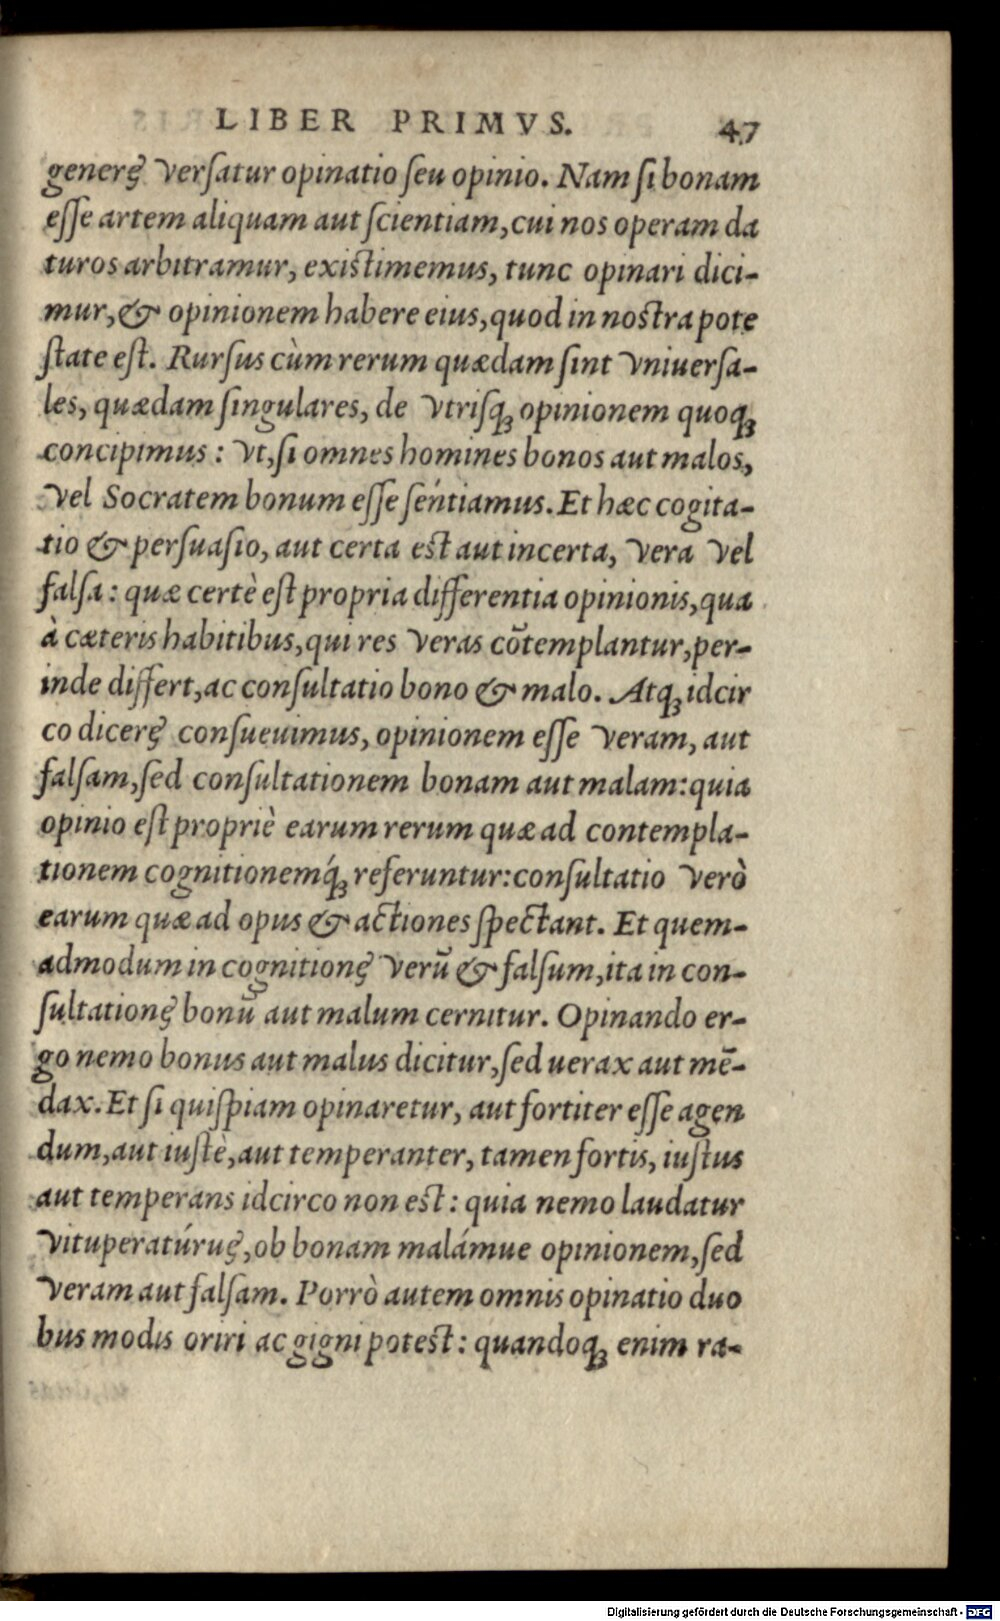 LIBER PRIMVS. 47
generę versatur opinatio seu opinio. Nam si bonam
esse artem aliquam aut scientiam, cui nos operam da
turos arbitramur, existimemus, tunc opinari dici-
mur, & opinionem habere eius, quod in nostra pote
state est. Rursus cùm rerum quædam sint vniuersa-
les, quædam singulares, de vtrisq; opinionem quoq;
concipimus: vt, si omnes homines bonos aut malos,
vel Socratem bonum esse sentiamus. Et hæc cogita-
tio & persuasio, aut certa est aut incerta, vera vel
falsa: quæ certè est propria differentia opinionis, qua
à cæteris habitibus, qui res veras cōtemplantur, per-
inde differt, ac consultatio bono & malo. Atq; idcir
co dicerę consueuimus, opinionem esse veram, aut
falsam, sed consultationem bonam aut malam: quia
opinio est propriè earum rerum quæ ad contempla-
tionem cognitionemq́; referuntur: consultatio verò
earum quæ ad opus & actiones spectant. Et quem-
admodum in cognitionę verū & falsum, ita in con-
sultationę bonū aut malum cernitur. Opinando er-
go nemo bonus aut malus dicitur, sed uerax aut mē-
dax. Et si quispiam opinaretur, aut fortiter esse agen
dum, aut iustè, aut temperanter, tamen fortis, iustus
aut temperans idcirco non est: quia nemo laudatur
vituperatúruę, ob bonam malámue opinionem, sed
veram aut falsam. Porrò autem omnis opinatio duo
bus modis oriri ac gigni potest: quandoq; enim ra-
Digitalisierung gefördert durch die Deutsche Forschungsgemeinschaft - DFG